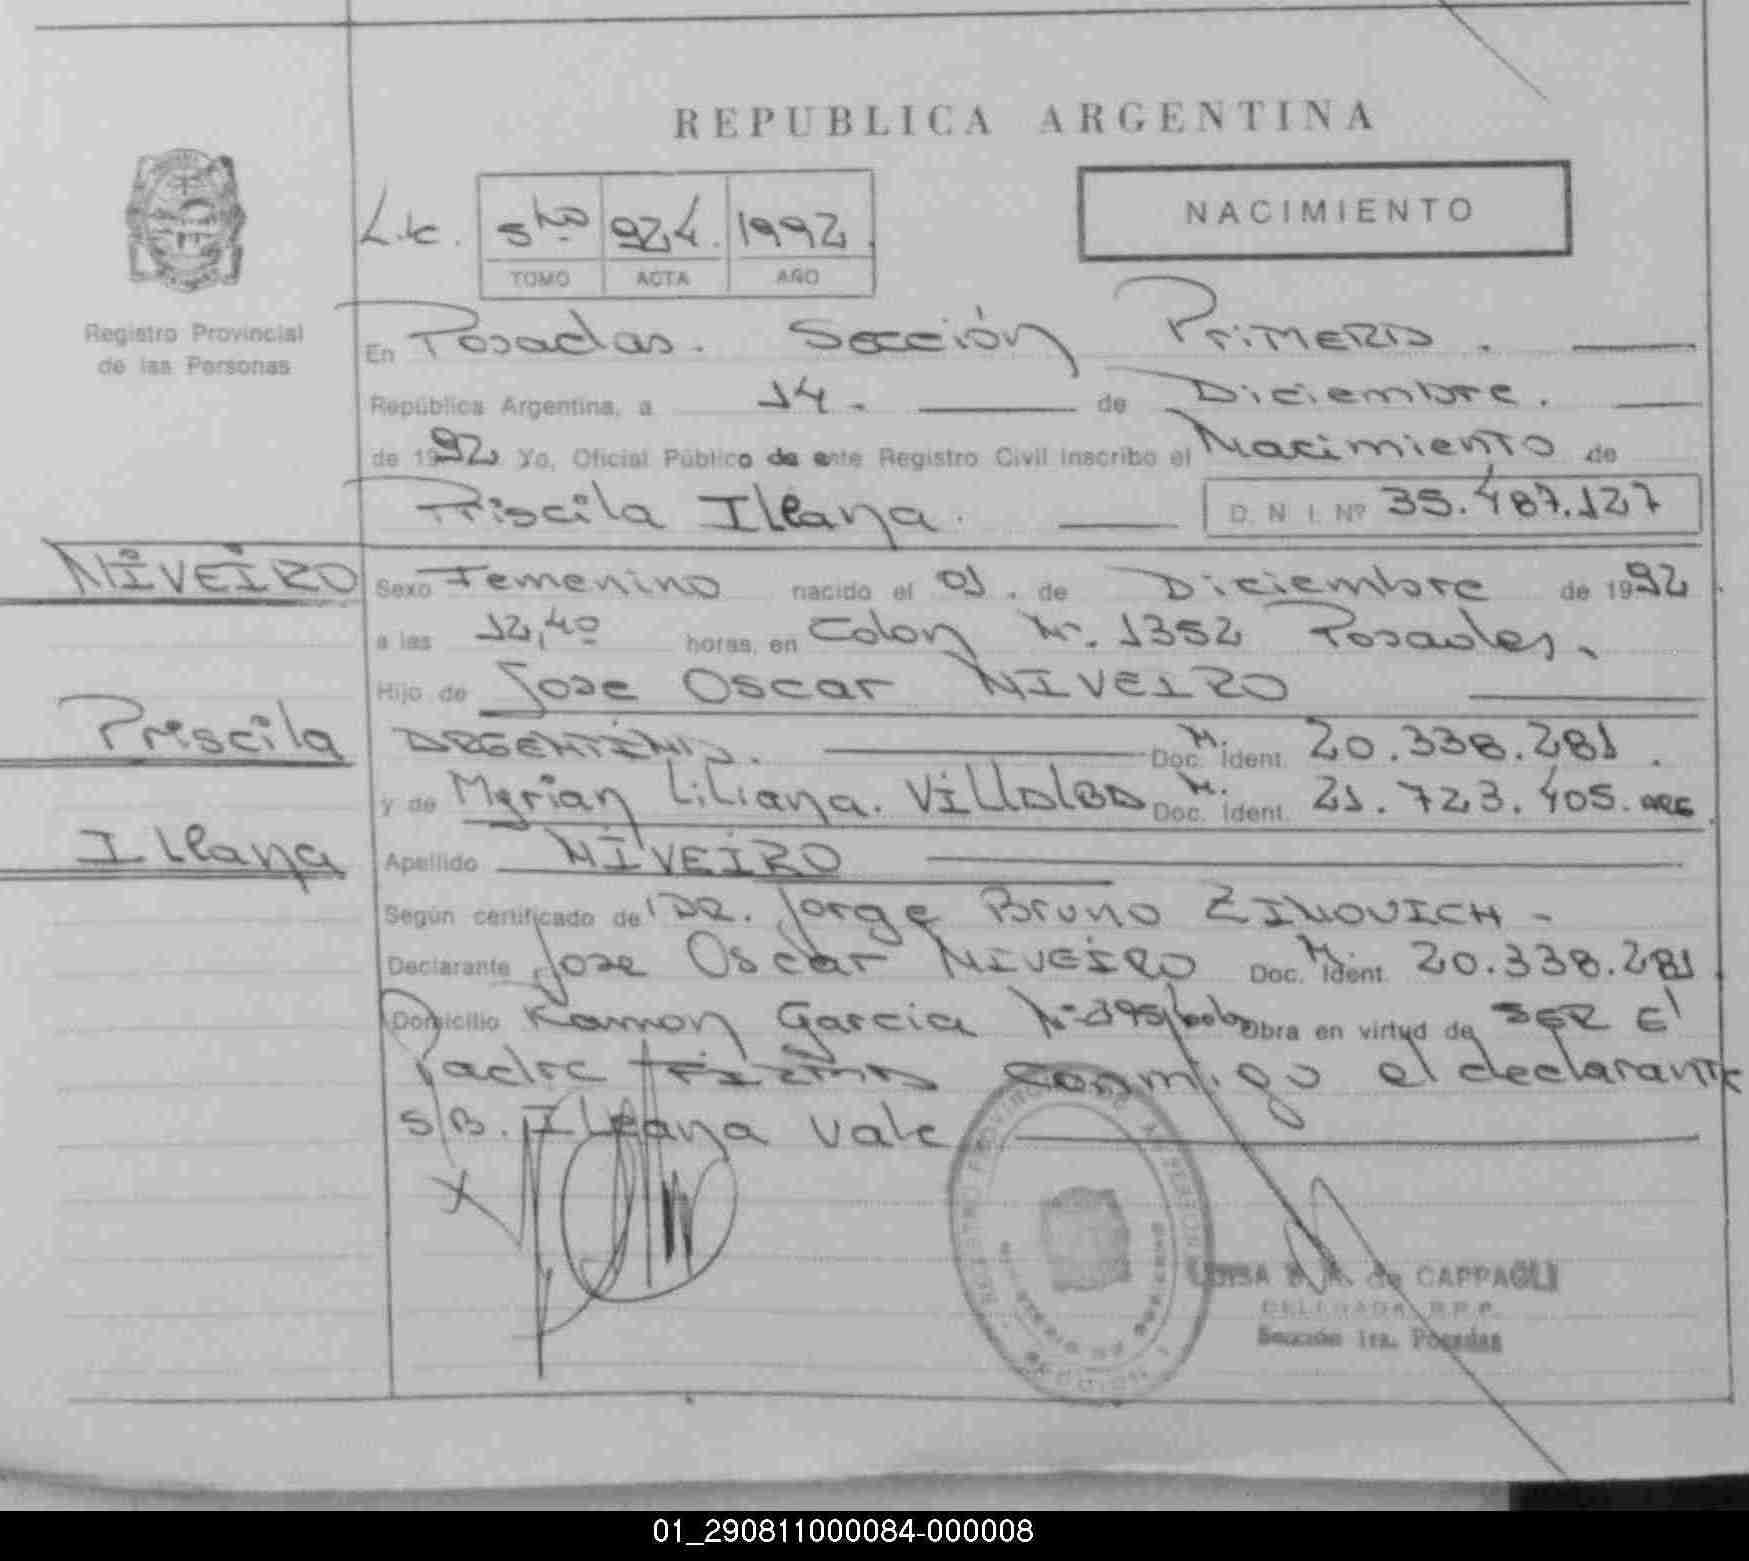 REPUBLICA ARGENTINA
NACIMIENTO
5to 924. 1992
TOMO ACTA AÑO
Registro Provincial
de las Personas
En Posadas. Sección Primera.
República Argentina, a 14. de Diciembre.
de 1992 Yo, Oficial Público de este Registro Civil inscribo el Nacimiento de
Priscila Ileana. D. N. I. Nº 35.487.127
NIVEIRO
Priscila
Ileana
Sexo Femenino nacido el 01. de Diciembre de 1992
a las 12,40 horas, en Colon Nº. 1352 Posadas.
Hijo de Jose Oscar NIVEIRO
ARGENTINO. Doc. Ident. M. 20.338.281.
y de Myrian Liliana. Villalba Doc. Ident. M. 21.723.405. ARG.
Apellido NIVEIRO
Según certificado de DR. Jorge Bruno ZINOVICH -
Declarante Jose Oscar NIVEIRO Doc. Ident. M. 20.338.281
Domicilio Ramon Garcia Obra en virtud de SER El
Padre FIRMA conmigo el declarante
S/B. Ileana Vale
de CAPPAGLI
DELEGADA R.P.P.
Sección 1ra. Posadas
01_290811000084-000008